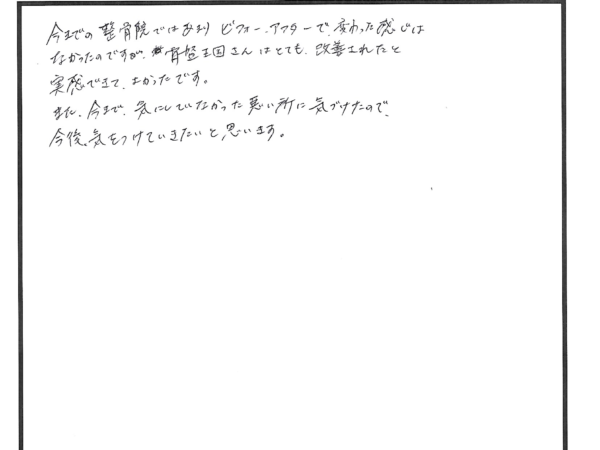 今までの整骨院ではあまり ビフォー.アフターで、変わった感じは
なかったのですが、骨盤王国さんはとても、改善されたと
実感できて、よかったです。
また、今まで、気にしていなかった悪い所に気づけたので、
今後、気をつけていきたいと思います。